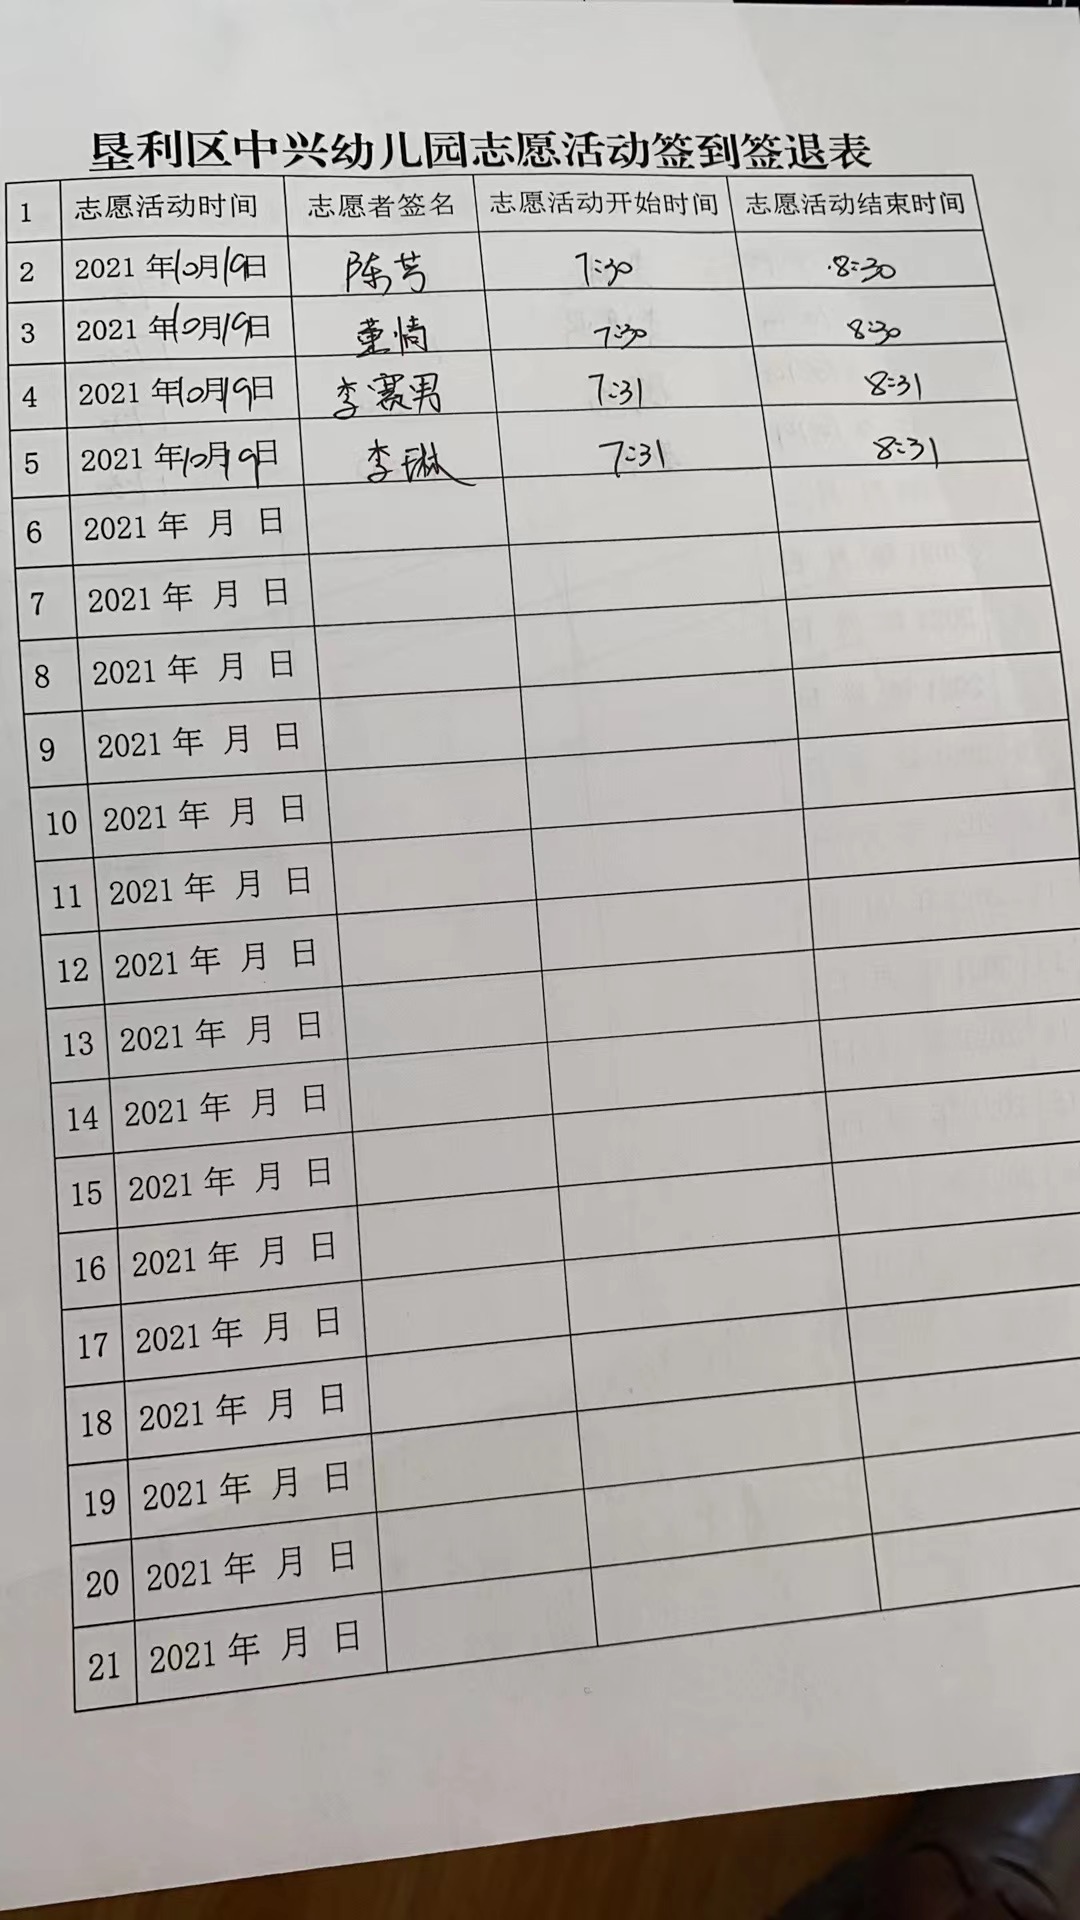 垦利区中兴幼儿园志愿活动签到签退表
1 志愿活动时间 志愿者签名 志愿活动开始时间 志愿活动结束时间
2 2021年10月19日 陈芳 7:30 8:30
3 2021年10月19日 董倩 7:30 8:30
4 2021年10月19日 李赛男 7:31 8:31
5 2021年10月19日 李琳 7:31 8:31
6 2021年 月 日
7 2021年 月 日
8 2021年 月 日
9 2021年 月 日
10 2021年 月 日
11 2021年 月 日
12 2021年 月 日
13 2021年 月 日
14 2021年 月 日
15 2021年 月 日
16 2021年 月 日
17 2021年 月 日
18 2021年 月 日
19 2021年 月 日
20 2021年 月 日
21 2021年 月 日